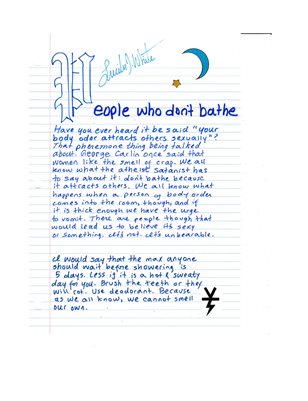 Lucila J. White
People who don't bathe
Have you ever heard it be said "your
body odor attracts others sexually"?
That pheremone thing being talked
about. George Carlin once said that
women like the smell of crap. We all
know what the atheist satanist has
to say about it: don't bathe because
it attracts others. We all know what
happens when a person of body order
comes into the room, though, and if
it is thick enough we have the urge
to vomit. There are people though that
would lead us to believe its sexy
or something. It's not. It's unbearable.
I would say that the max anyone
should wait before showering is
5 days. Less if it is a hot & sweaty
day for you. Brush the teeth or they
will rot. Use deodorant. Because
as we all know, we cannot smell
our own.